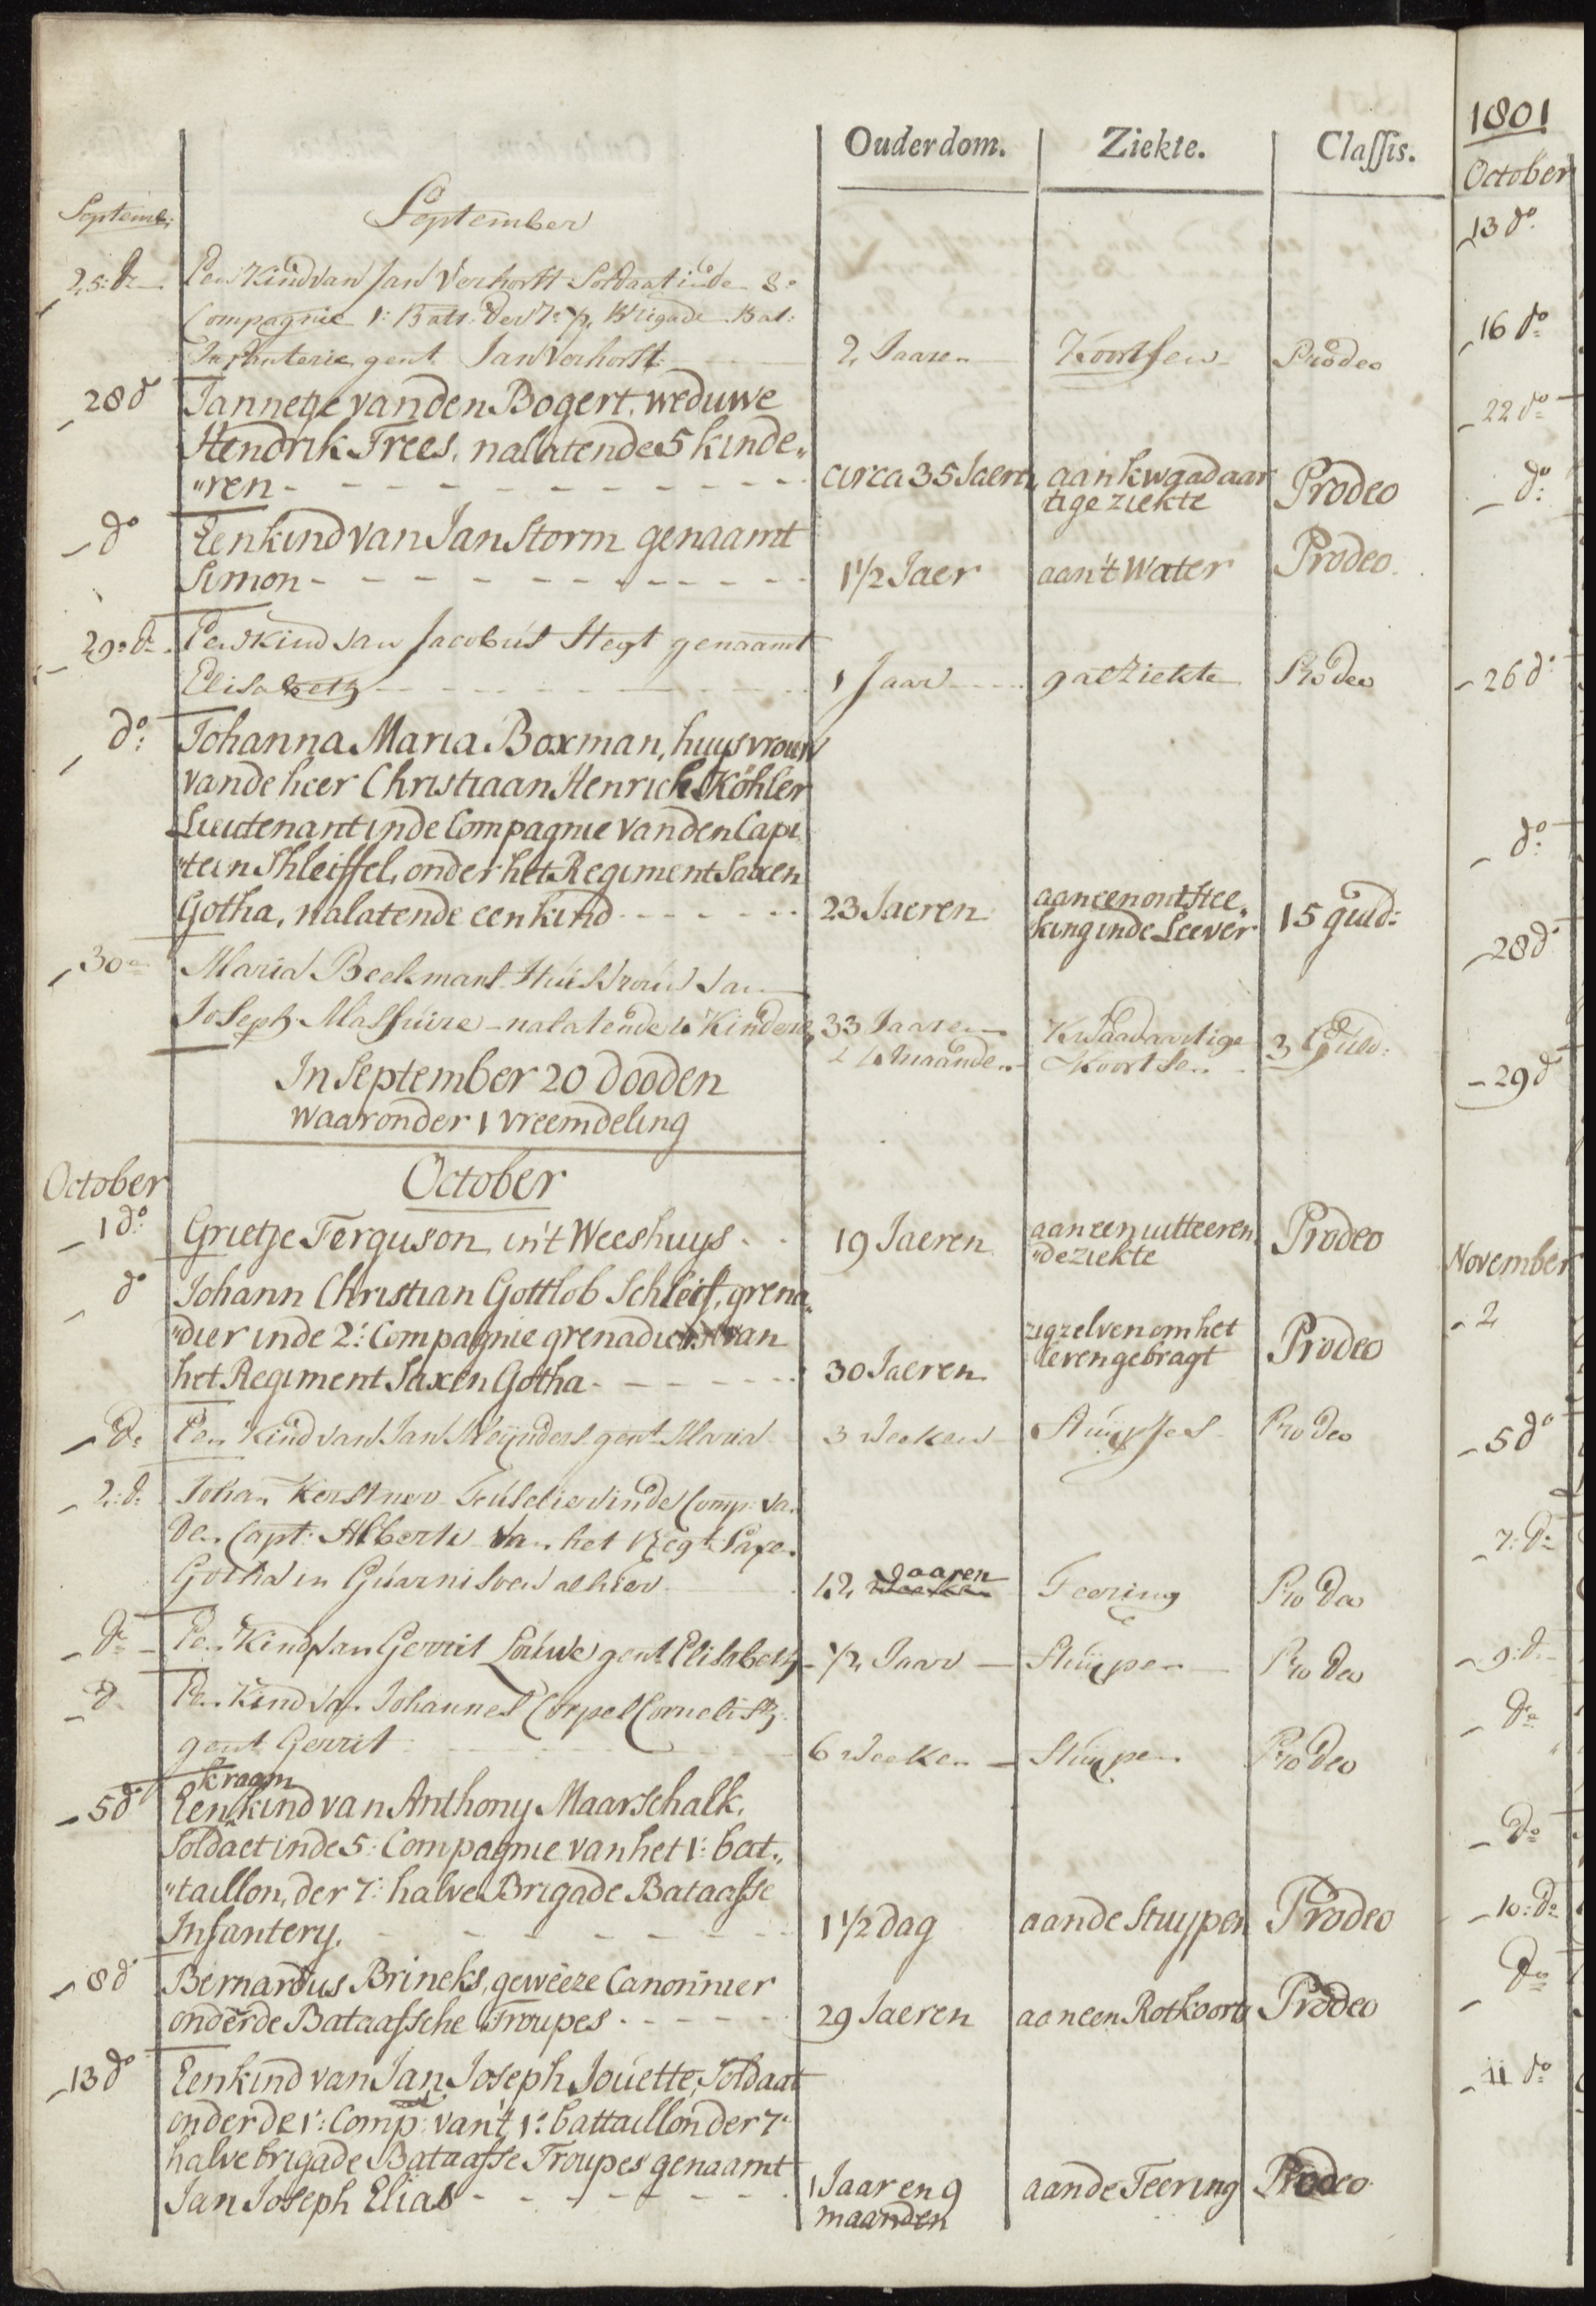 Ouderdom. Ziekte. Classis.
Septemb: September
25: do Een Kind van Jan Verhorst Soldaat in de 8e
Compagnie 1: Batt: der 7e 1/2 Brigade Bat:
Infanterie gent Jan Verhorst 2 Jaaren Koortsen Prodeo
28 do Jannetje van den Bogert, weduwe
Hendrik Frees, nalatende 5 kinde„
„ren - - - circa 35 Jaeren aan kwaadaar
tige ziekte Prodeo
do Een kind van Jan Storm genaamt
Simon - - - 1 1/2 Jaer aan 't Water Prodeo.
29: do Een Kind van Jacobus Hegt genaamt
Elisabeth - - - 1 Jaar galziekte Pro deo
do: Johanna Maria Boxman, huysvrouw
van de heer Christiaan Henrich Köhler
Lieutenant in de Compagnie van den Capi„
„tein Shleiffel, onder het Regiment Saxen
Gotha, nalatende een kind - - - 23 Jaeren aan een ontstee„
king in de Leever 15 guld:
30 Maria Beekmans Huisvrouw van
Joseph Massuire - nalatende 6 Kindere 33 Jaaren
Kwaadaartige 3 Guld:
maande Koortsen
In September 20 dooden
waaronder 1 vreemdeling
October October
1 do: Grietje Ferguson, in 't Weeshuys - - 19 Jaeren aan een uitteeren„
„de ziekte Prodeo
do Johann Christian Gottlob Schleif, grena„
„dier in de 2: Compagnie grenadiers van
het Regiment Saxen Gotha - - - 30 Jaeren zig zelven om het
leven gebragt Prodeo
do Een Kind van Jan Meijnders gent Maria 3 weeken Stuipjes Pro deo
2: do Johan Kerstner Fuselier in de Comp: van
den Capt: Alberti van het Regt Saxen
Gotha in Guarnisoen alhier 42 Jaaren Teering Pro deo
do Een Kind van Gerrit Louwe gent Elisabeth 1/2 Jaar Stuipen Pro deo
do Een Kind van Johannes Corpel Cornelisz
gent Gerrit 6 weeken Stuipen Pro deo
kraam
5 do Een kind van Anthony Maarschalk,
Soldaet in de 5: Compagnie van het 1: bat„
„taillon, der 7: halve Brigade Bataafse
Infantery, - - - 1 1/2 dag aan de Stuypen Prodeo
8 do Bernardus Brineks, geweeze Canonnier
onder de Bataafsche Troupes - - - 29 Jaeren aan een Rotkoorts Prodeo
13 do Een kind van Jan Joseph Jouette, Soldaat
onder de 1: Comp: van 't 1: battaillon der 7:
halve brigade Bataafse Troupes genaamt
Jan Joseph Elias - - - 1 Jaar en 9
maanden aan de Teering Prodeo
1801
October
13 do
16 do
22 do
do:
26 do
do:
28 do
29 do
November
2
5 do
7: do
9: do
do
do
10: do
do
11 do